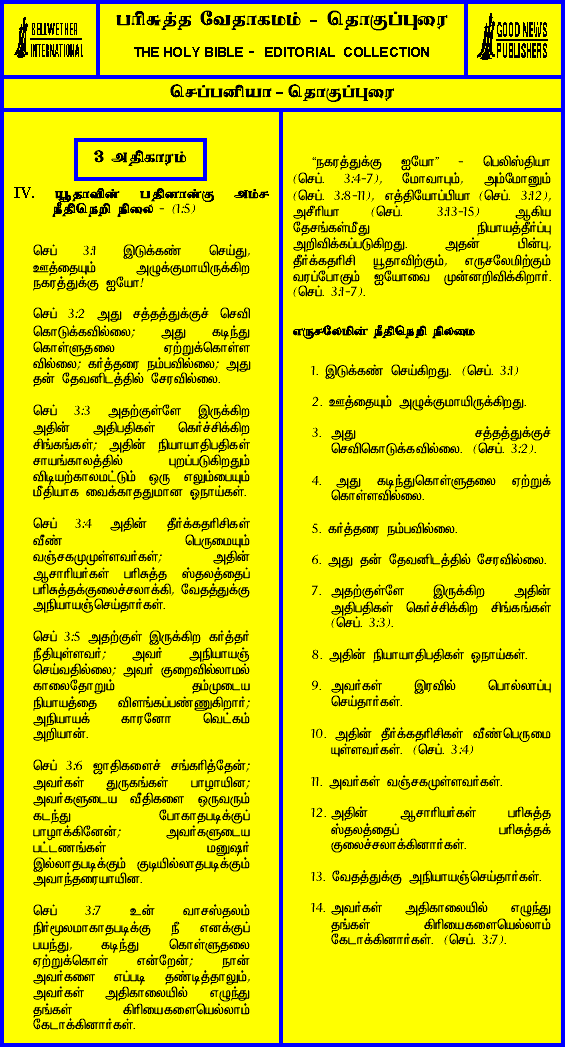 BELLWETHER
INTERNATIONAL
பரிசுத்த வேதாகமம் - தொகுப்புரை
THE HOLY BIBLE - EDITORIAL COLLECTION
GOOD NEWS
PUBLISHERS
செப்பனியா - தொகுப்புரை
3 அதிகாரம்
IV. யூதாவின் பதினான்கு அம்ச
நீதிநெறி நிலை - (1:5)
செப் 3:1 இடுக்கண் செய்து,
ஊத்தையும் அழுக்குமாயிருக்கிற
நகரத்துக்கு ஐயோ!
செப் 3:2 அது சத்தத்துக்குச் செவி
கொடுக்கவில்லை; அது கடிந்து
கொள்ளுதலை ஏற்றுக்கொள்ள
வில்லை; கர்த்தரை நம்பவில்லை; அது
தன் தேவனிடத்தில் சேரவில்லை.
செப் 3:3 அதற்குள்ளே இருக்கிற
அதின் அதிபதிகள் கெர்ச்சிக்கிற
சிங்கங்கள்; அதின் நியாயாதிபதிகள்
சாயங்காலத்தில் புறப்படுகிறதும்
விடியற்காலமட்டும் ஒரு எலும்பையும்
மீதியாக வைக்காததுமான ஓநாய்கள்.
செப் 3:4 அதின் தீர்க்கதரிசிகள்
வீண் பெருமையும்
வஞ்சகமுமுள்ளவர்கள்; அதின்
ஆசாரியர்கள் பரிசுத்த ஸ்தலத்தைப்
பரிசுத்தக்குலைச்சலாக்கி, வேதத்துக்கு
அநியாயஞ்செய்தார்கள்.
செப் 3:5 அதற்குள் இருக்கிற கர்த்தர்
நீதியுள்ளவர்; அவர் அநியாயஞ்
செய்வதில்லை; அவர் குறைவில்லாமல்
காலைதோறும் தம்முடைய
நியாயத்தை விளங்கப்பண்ணுகிறார்;
அநியாயக் காரனோ வெட்கம்
அறியான்.
செப் 3:6 ஜாதிகளைச் சங்கரித்தேன்;
அவர்கள் துருகங்கள் பாழாயின;
அவர்களுடைய வீதிகளை ஒருவரும்
கடந்து போகாதபடிக்குப்
பாழாக்கினேன்; அவர்களுடைய
பட்டணங்கள் மனுஷர்
இல்லாதபடிக்கும் குடியில்லாதபடிக்கும்
அவாந்தரையாயின.
செப் 3:7 உன் வாசஸ்தலம்
நிர்மூலமாகாதபடிக்கு நீ எனக்குப்
பயந்து, கடிந்து கொள்ளுதலை
ஏற்றுக்கொள் என்றேன்; நான்
அவர்களை எப்படி தண்டித்தாலும்,
அவர்கள் அதிகாலையில் எழுந்து
தங்கள் கிரியைகளையெல்லாம்
கேடாக்கினார்கள்.
“நகரத்துக்கு ஐயோ” - பெலிஸ்தியா
(செப். 3:4-7), மோவாபும், அம்மோனும்
(செப். 3:8-11), எத்தியோப்பியா (செப். 3:12),
அசீரியா (செப். 3:13-15) ஆகிய
தேசங்கள்மீது நியாயத்தீர்ப்பு
அறிவிக்கப்படுகிறது. அதன் பின்பு,
தீர்க்கதரிசி யூதாவிற்கும், எருசலேமிற்கும்
வரப்போகும் ஐயோவை முன்னறிவிக்கிறார்.
(செப். 3:1-7).
எருசலேமின் நீதிநெறி நிலமை
1. இடுக்கண் செய்கிறது. (செப். 3:1)
2. ஊத்தையும் அழுக்குமாயிருக்கிறது.
3. அது சத்தத்துக்குச்
செவிகொடுக்கவில்லை. (செப். 3:2).
4. அது கடிந்துகொள்ளுதலை ஏற்றுக்
கொள்ளவில்லை.
5. கர்த்தரை நம்பவில்லை.
6. அது தன் தேவனிடத்தில் சேரவில்லை.
7. அதற்குள்ளே இருக்கிற அதின்
அதிபதிகள் கெர்ச்சிக்கிற சிங்கங்கள்
(செப். 3:3).
8. அதின் நியாயாதிபதிகள் ஓநாய்கள்.
9. அவர்கள் இரவில் பொல்லாப்பு
செய்தார்கள்.
10. அதின் தீர்க்கதரிசிகள் வீண்பெருமை
யுள்ளவர்கள். (செப். 3:4)
11. அவர்கள் வஞ்சகமுள்ளவர்கள்.
12. அதின் ஆசாரியர்கள் பரிசுத்த
ஸ்தலத்தைப் பரிசுத்தக்
குலைச்சலாக்கினார்கள்.
13. வேதத்துக்கு அநியாயஞ்செய்தார்கள்.
14. அவர்கள் அதிகாலையில் எழுந்து
தங்கள் கிரியைகளையெல்லாம்
கேடாக்கினார்கள். (செப். 3:7).